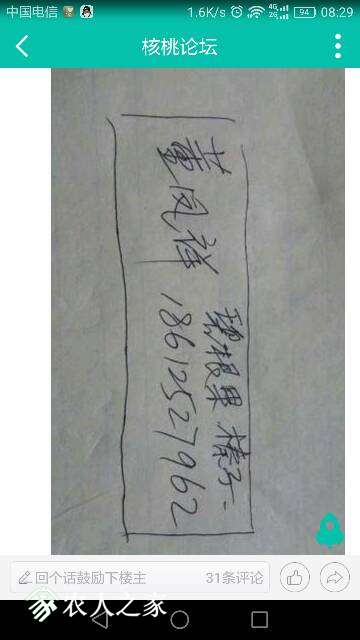 中国电信 1.6K/s 4G 2G 94 08:29
核桃论坛
董凤祥
碧根果 榛子
18612527962
回个话鼓励下楼主 31条评论
农人之家